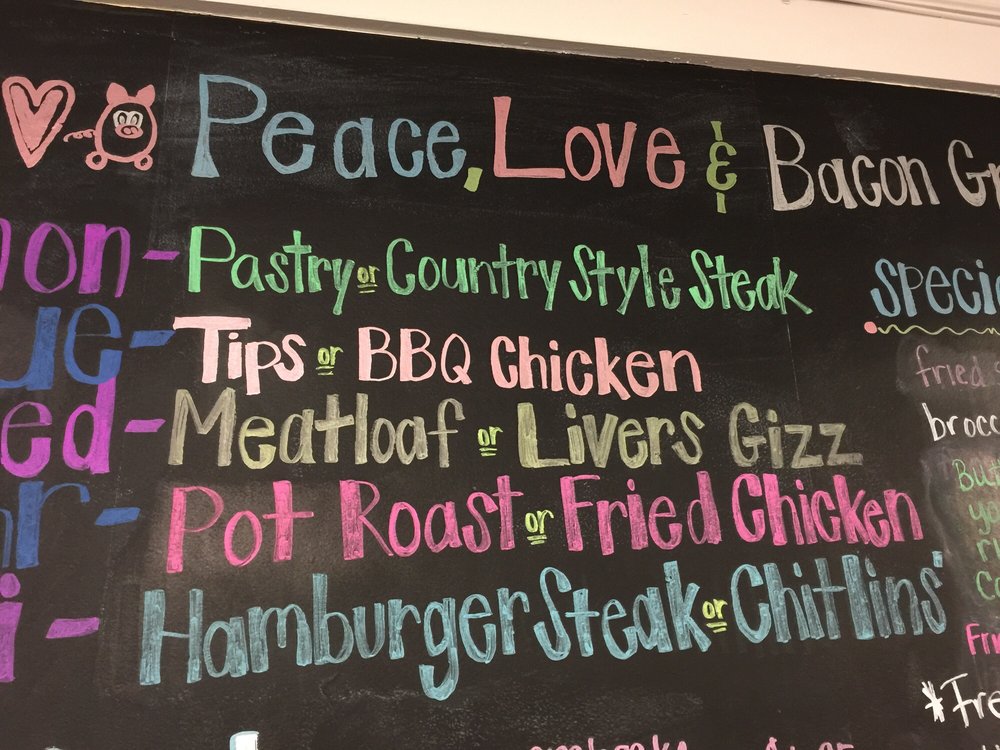 Peace, Love & Bacon Gr
on - Pastry or Country Style Steak
ue - Tips or BBQ Chicken
ed - Meatloaf or Livers Gizz
hr - Pot Roast or Fried Chicken
i - Hamburger Steak or Chitlins'
Speci
fried
brocc
But
*Fre